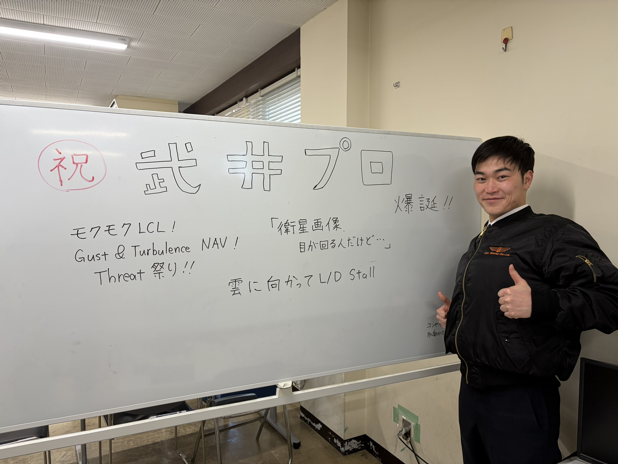 祝
武井プロ
爆誕!!
モクモクLCL!
Gust & Turbulence NAV!
Threat 祭り!!
「衛星画像、
目が回るんだけど…」
雲に向かって L/D Stall